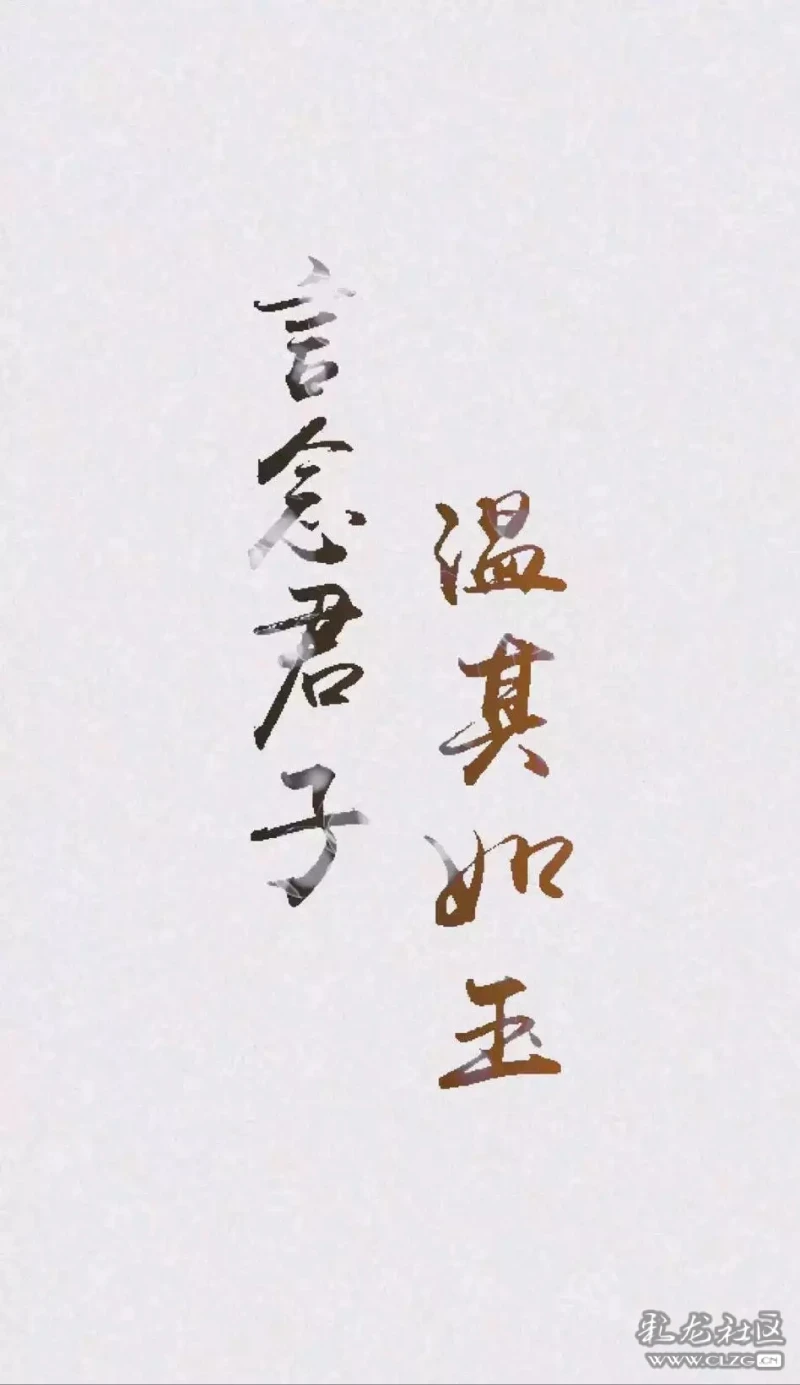 言念君子
温其如玉
彩龙社区
WWW.CLZG.CN